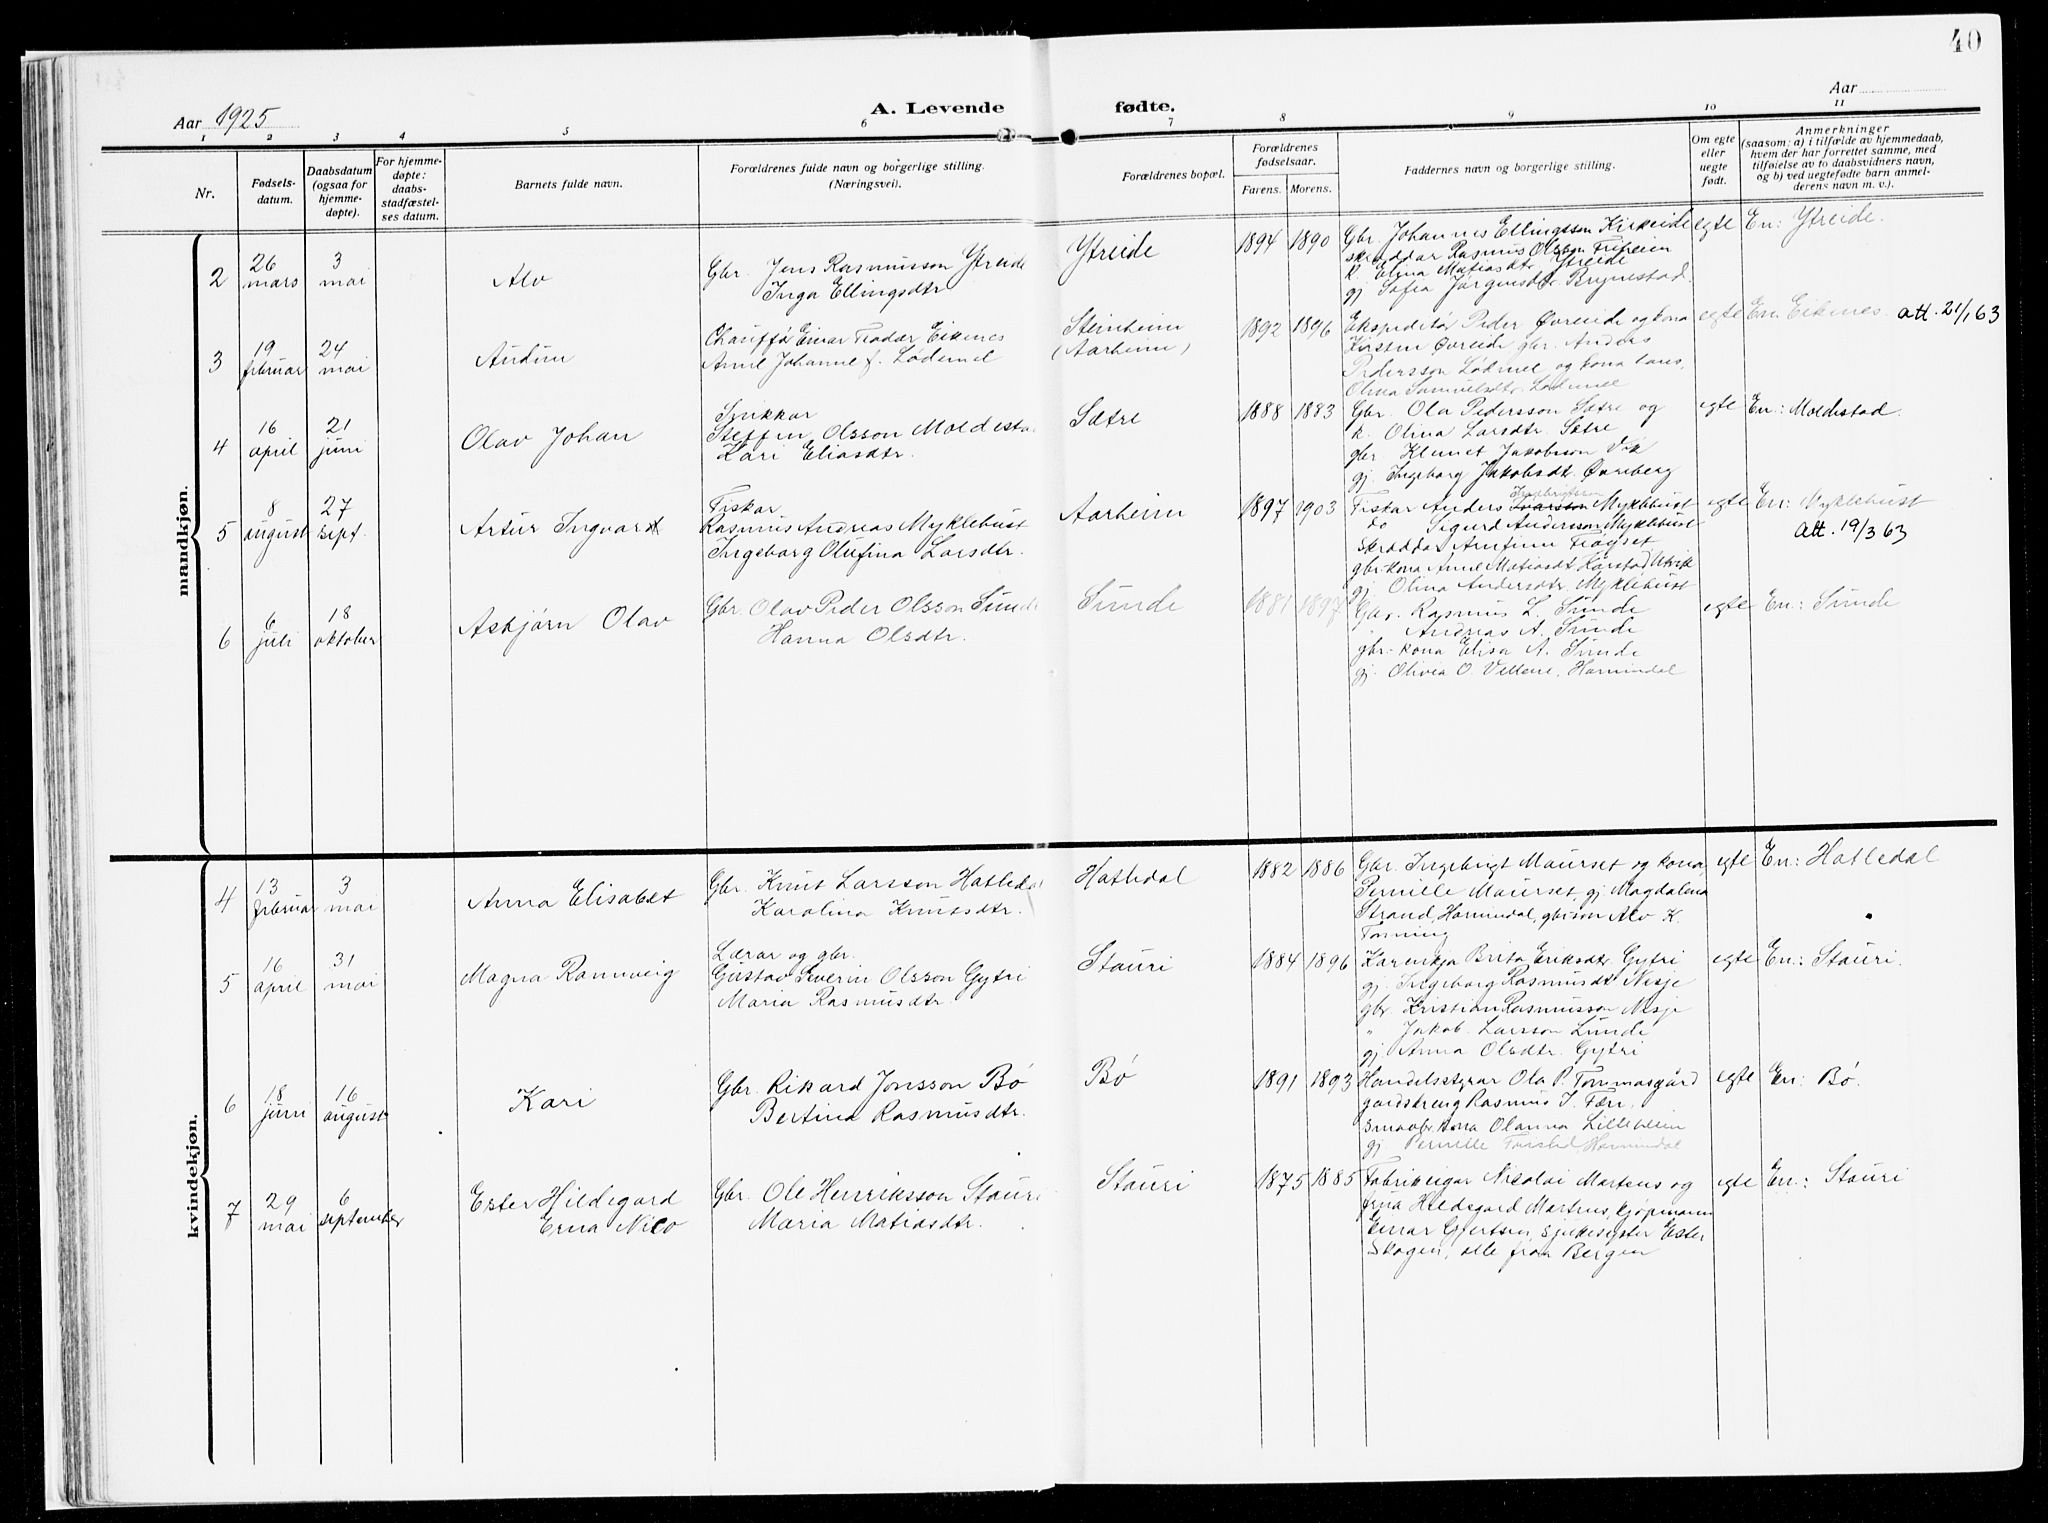 40
Aar 1925
A. Levende fødte.
Aar
1 2 3 4 5 6 7 8 9 10 11
Nr.
Fødselsdatum.
Daabsdatum (ogsaa for hjemmedøpte).
For hjemmedøpte: daabsstadfæstelses datum.
Barnets fulde navn.
Forældrenes fulde navn og borgerlige stilling. (Næringsvei).
Forældrenes bopæl.
Forældrenes fødselsaar.
Farens. Morens.
Faddernes navn og borgerlige stilling.
Om egte eller uegte født.
Anmerkninger
(saasom: a) i tilfælde av hjemmedaab,
hvem der har forrettet samme, med
tilføielse av to daabsvidners navn,
og b) ved uegtefødte barn anmelderens navn m. v.).
mandkjøn.
2
26 mars
3 mai
Alv
Gbr. Jens Rasmusson Ytreide
Inga Ellingsdtr
Ytreide
1894 1890
Gbr. Johannes Ellingsson Kirkeide
skræddar Rasmus Olsson
k. Elina Matiasdtr. Ytreide
gj Sofia Jørgensdtr. Brynestad
egte
En: Ytreide.
3
19 februar
24 mai
Audun
Chauffø Einar Teodor Eikenes
Anne Johanne f. Lødemel
Steinheim
(Aarheim)
1892 1896
Ekspeditør Peder Øvreide og kona
Kirsten Øvreide gbr. Anders
Pedersson Lødemel og kona hans,
Olina Samuelsdtr. Lødemel
egte
En: Eikenes. att. 21/1 63
4
16 april
21 juni
Olav Johan
Snikkar
Steffen Olsson Moldesta
Kari Eliasdtr.
Sætre
1888 1883
Gbr. Ola Pedersson Sætre og
k. Olina Larsdtr. Sætre
gbr Klemet Jakobsson Vik
gj Ingeborg Jakobsdt. Øvreberg
egte
En: Moldestad.
5
8 august
27 sept.
Artur Ingvard
Fiskar
Rasmus Andreas Myklebust
Ingeborg Olufina Larsdtr.
Aarheim
1897 1903
Fiskar Anders Ivarsson Myklebust
do Sigurd Andersson Myklebust
skræddar Arnfinn Frøyset
gbr-kona Anne Matiasdt Karstad Utvik
gj. Olina Andersdtr Myklebust
egte
En: Myklebust
att. 19/3 63
6
6 juli
18 oktober
Asbjørn Olav
Gbr. Olav Peder Olsson Sunde
Hanna Olsdtr.
Sunde
1881 1897
Gbr. Rasmus L. Sunde
" Andreas A. Sunde
gbr-kona Elisa A. Sunde
gj. Olivia O. Hornindal
egte
En: Sunde
kvindekjøn.
4
13 februar
3 mai
Anna Elisabet
Gbr. Knut Larsson Hatledal
Karolina Knutsdtr.
Hatledal
1882 1886
Gbr. Ingebrigt Maurset og kona
Pernille Maurset, gj Magdalena
Strand, Hornindal, gbrson Alv K.
Tonning
egte
En: Hatledal
5
16 april
31 mai
Magna Rannveig
Lærar og gbr.
Gustav Severin Olsson Gytri
Maria Rasmusdtr.
Stauri
1884 1896
Kårenkja Brita Eriksdtr. Gytri
gj. Ingeborg Rasmusdt Nesje
gbr. Kristian Rasmusson Nesje
" Jakob Larsson Sunde
gj. Anna Olsdtr. Gytri
egte
En: Stauri.
6
18 juni
16 august
Kari
Gbr. Rikard Jonsson Bø
Bertina Rasmusdtr.
Bø
1891 1893
Handelsstyrar Ola P. Tommasgård
gardbreng Rasmus J. Færi.
smaabr.kona Olanna Lilleheim
gj. Pernille Hornindal
egte
En: Bø.
7
29 mai
6 september
Ester Hildegard
Erna Nico
Gbr. Ole Henriksson Stauri
Maria Matiasdtr.
Stauri
1875 1885
Fabrikeigar Nikolai Martens og
frua Hildegard Martens, kjøpmann
Einar Gjertsen, sjukesyster Ester
Skogen, alle fraa Bergen
egte
En: Stauri